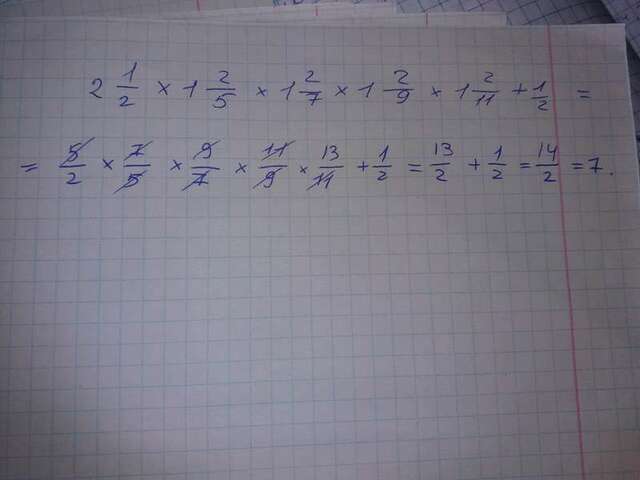 2 1/2 × 1 2/5 × 1 2/7 × 1 2/9 × 1 2/11 + 1/2 =
= 5/2 × 7/5 × 9/7 × 11/9 × 13/11 + 1/2 = 13/2 + 1/2 = 14/2 = 7.